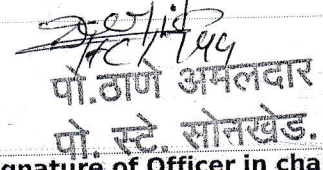 पो.ठाणे अमलदार
पो. स्टे. सोनखेड.
gnature of Officer in cha